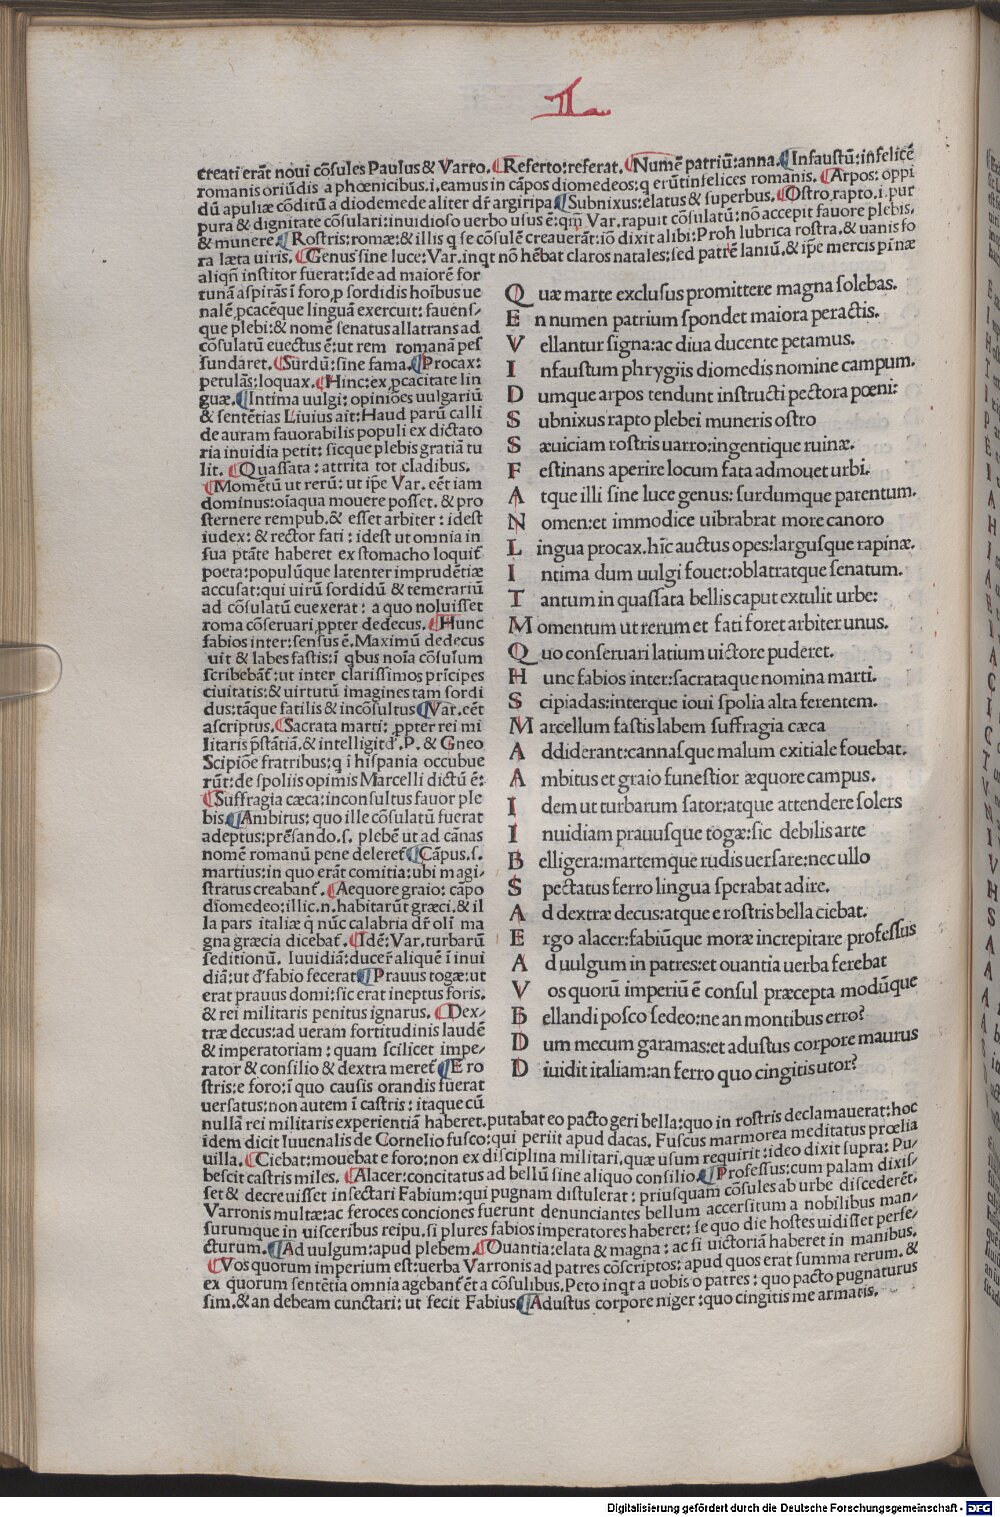 creati erãt noui cõsules Paulus & Varro. Referto: referat. Numẽ patriũ: anna. Infaustũ: infelicẽ
romanis oriũdis a phœnicibus. i. eamus in cãpos diomedeos: q erũt infelices romanis. Arpos: oppi
dũ apuliæ cõditũ a diodemede aliter dr̃ argiripa. Subnixus: elatus & superbus. Ostro rapto. i. pur
pura & dignitate cõsulari: inuidioso uerbo usus ẽ: qm̃ Var. rapuit cõsulatũ: nõ accepit fauore plebis.
& munere. Rostris: romæ: & illis q se cõsulẽ creauerãt: iõ dixit alibi: Proh lubrica rostra. & uanis fo
ra læta uiris. Genus sine luce: Var. inqt nõ hẽbat claros natales: sed patrẽ laniũ. & ip̃e mercis pinæ
aliqñ institor fuerat: ĩde ad maiorẽ for
tunã aspirãs ĩ foro, p sordidis hoĩbus ue
nalẽ, pcacẽque linguã exercuit: fauens/
que plebi: & nomẽ senatus allatrans ad
cõsulatũ euectus ẽ: ut rem romanã pes
sundaret. Surdũ: sine fama. Procax:
petulãs: loquax. Hinc: ex, pcacitate lin
guæ. Intima uulgi: opiniões uulgariũ
& sentẽtias Liuius ait: Haud parũ calli
de auram fauorabilis populi ex dictato
ria inuidia petit: sicque plebis gratiã tu
lit. Quassata: attrita tot cladibus.
Momẽtũ ut rerũ: ut ip̃e Var. eẽt iam
dominus: oĩaqua mouere posset. & pro
sternere rempub. & esset arbiter: idest
iudex: & rector fati: idest ut omnia in
sua ptãte haberet ex stomacho loquit̃
poeta: populũque latenter imprudẽtiæ
accusat: qui uirũ sordidũ & temerariũ
ad cõsulatũ euexerat: a quo noluisset
roma cõseruari, ppter dedecus. Hunc
fabios inter: sensus ẽ. Maximũ dedecus
uit & labes fastis: ĩ qbus noĩa cõsulum
scribebãt̃: ut inter clarissimos prĩcipes
ciuitatis: & uirtutũ imagines tam sordi
dus: tãque fatilis & incõsultus Var. eẽt
ascriptus. Sacrata marti: ppter rei mi
litaris p̃stãtiã. & intelligit d̃. P. & Gneo
Scipiõe fratribus: q ĩ hispania occubue
rũt: de spoliis opimis Marcelli dictũ ẽ:
Suffragia cæca: inconsultus fauor ple
bis. Ambitus: quo ille cõsulatũ fuerat
adeptus: prẽsando. s. plebẽ ut ad cãnas
nomẽ romanũ pene deleret. Cãpus. s.
martius: in quo erãt comitia: ubi magi/
stratus creabant̃. Aequore graio: cãpo
diomedeo: illic. n. habitarũt græci. & il
la pars italiæ q̃ nũc calabria dr̃ olĩ ma
gna græcia dicebat̃. Idẽ: Var. turbarũ
seditionũ. Iuuidiã: ducer̃ aliquẽ ĩ inui
diã: ut d̃ fabio fecerat. Prauus togæ: ut
erat prauus domi: sic erat ineptus foris.
& rei militaris penitus ignarus. Dex/
træ decus: ad ueram fortitudinis laudẽ
& imperatoriam: quam scilicet impe/
rator & consilio & dextra meret̃. E ro
stris: e foro: ĩ quo causis orandis fuerat
uersatus: non autem ĩ castris: itaque cũ
Quæ marte exclusus promittere magna solebas.
En numen patrium spondet maiora peractis.
Vellantur signa: ac diua ducente petamus.
Infaustum phrygiis diomedis nomine campum.
Dumque arpos tendunt instructi pectora pœni:
Subnixus rapto plebei muneris ostro
Sæuiciam rostris uarro: ingentique ruinæ.
Festinans aperire locum fata admouet urbi.
Atque illi sine luce genus: surdumque parentum.
Nomen: et immodice uibrabrat more canoro
Lingua procax. hĩc auctus opes: largusque rapinæ.
Intima dum uulgi fouet: oblatratque senatum.
Tantum in quassata bellis caput extulit urbe:
Momentum ut rerum et fati foret arbiter unus.
Quo conseruari latium uictore puderet.
Hunc fabios inter: sacrataque nomina marti.
Scipiadas: interque ioui spolia alta ferentem.
Marcellum fastis labem suffragia cæca
Addiderant: cannasque malum exitiale fouebat.
Ambitus et graio funestior æquore campus.
Idem ut turbarum sator: atque attendere solers
Inuidiam prauusque togæ: sic debilis arte
Belligera: martemque rudis uersare: nec ullo
Spectatus ferro lingua sperabat adire.
Ad dextræ decus: atque e rostris bella ciebat.
Ergo alacer: fabiũque moræ increpitare professus
Ad uulgum in patres: et ouantia uerba ferebat
Vos quorũ imperiũ ẽ consul præcepta modũque
Bellandi posco sedeo: ne an montibus erro?
Dum mecum garamas: et adustus corpore maurus
Diuidit italiam: an ferro quo cingitis utor?
nullã rei militaris experientiã haberet. putabat eo pacto geri bella: quo in rostris declamauerat: hoc
idem dicit Iuuenalis de Cornelio fusco: qui periit apud dacas. Fuscus marmorea meditatus prœlia
uilla. Ciebat: mouebat e foro: non ex disciplina militari, quæ usum requirit: ideo dixit supra: Pu/
bescit castris miles. Alacer: concitatus ad bellũ sine aliquo consilio. Professus: cum palam dixis/
set & decreuisset insectari Fabium: qui pugnam distulerat: priusquam cõsules ab urbe discederẽt.
Varronis multæ: ac feroces conciones fuerunt denunciantes bellum accersitum a nobilibus man/
surumque in uisceribus reipu. si plures fabios imperatores haberet: se quo die hostes uidisset perfe/
cturum. Ad uulgum: apud plebem. Ouantia: elata & magna: ac si uictoriã haberet in manibus.
Vos quorum imperium est: uerba Varronis ad patres cõscriptos: apud quos erat summa rerum. &
ex quorum sentẽtia omnia agebant̃ ẽt a cõsulibus. Peto inqt a uobis o patres: quo pacto pugnaturus
sim. & an debeam cunctari: ut fecit Fabius. Adustus corpore niger: quo cingitis me armatis.
Digitalisierung gefördert durch die Deutsche Forschungsgemeinschaft - DFG